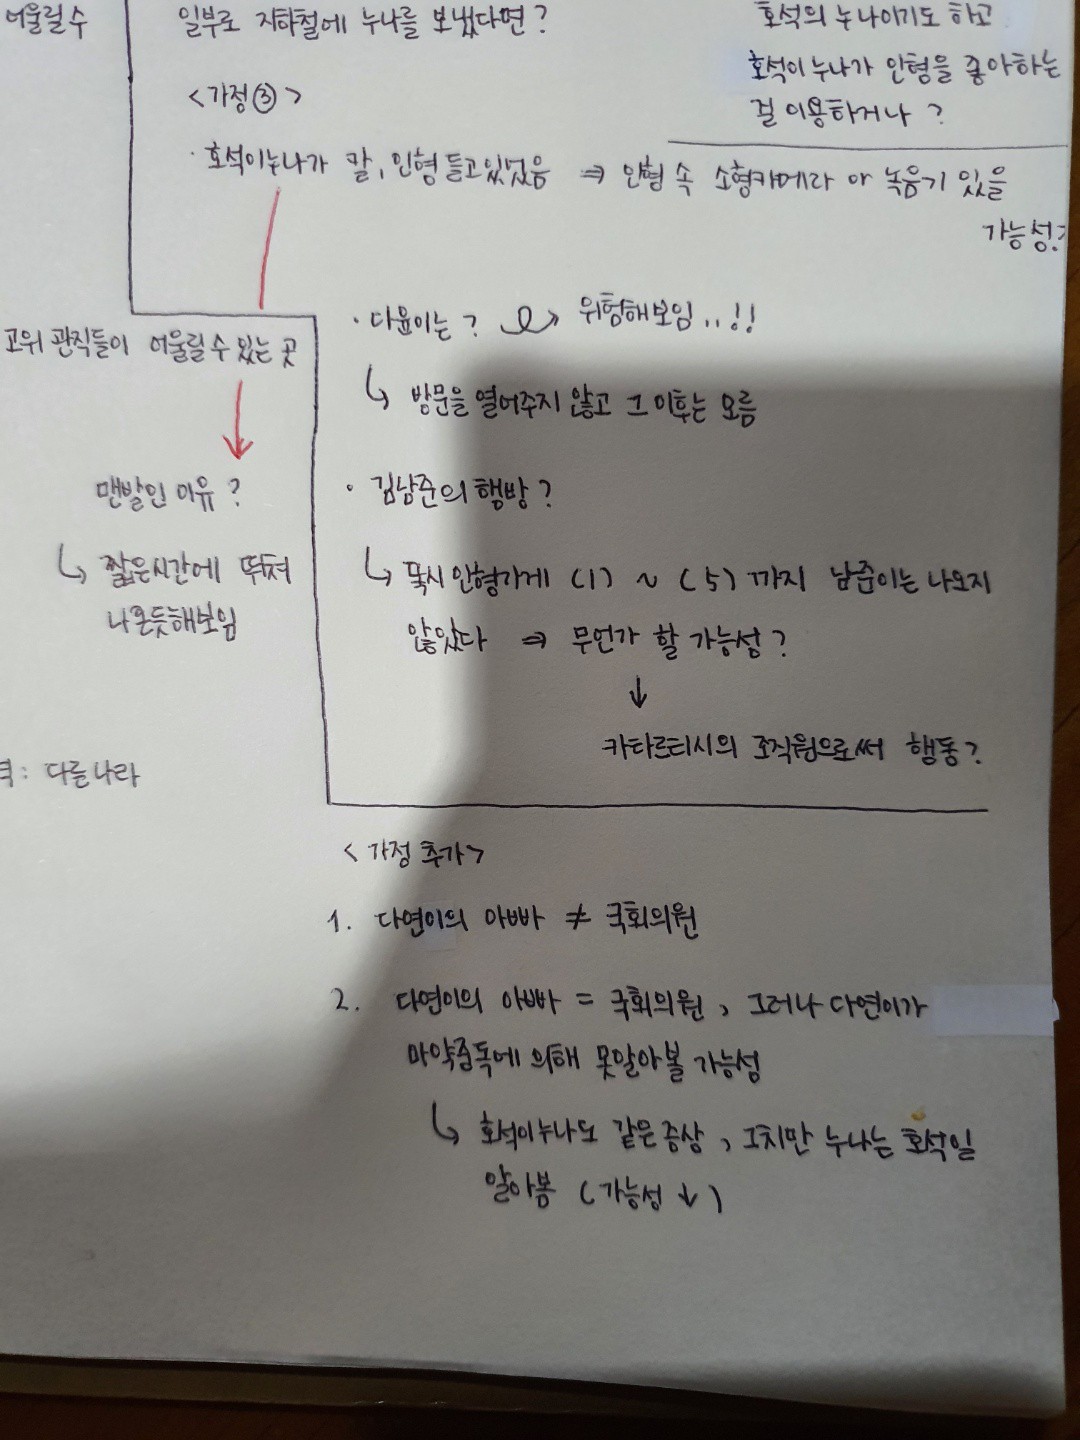 어울릴수
일부로 지하철에 누나를 보냈다면?
호석의 누나이기도 하고
호석이누나가 인형을 좋아하는
걸 이용하거나 ?
<가정③>
· 호석이누나가 말, 인형 들고있었음 ⇒ 인형 속 소형카메라 아 녹음기 있을
가능성?
고위 관직들이 어울릴수 있는 곳
맨발인 이유 ?
↳ 짧은시간에 뛰쳐
나온듯해보임
: 다른나라
· 다윤이는 ? → 위험해보임 ..!!
↳ 방문을 열어주지 않고 그 이후는 모름
· 김남준의 행방 ?
↳ 혹시 인형가게 (1) ~ (5) 까지 남준이는 나오지
않았다 ⇒ 무언가 할 가능성 ?
↓
카타르티시의 조직원으로써 행동 ?
<가정 추가>
1. 다연이의 아빠 ≠ 국회의원
2. 다연이의 아빠 = 국회의원 , 그러나 다연이가
마약중독에 의해 못알아볼 가능성
↳ 호석이누나도 같은 증상 , 그치만 누나는 호석일
알아봄 (가능성 ↓)